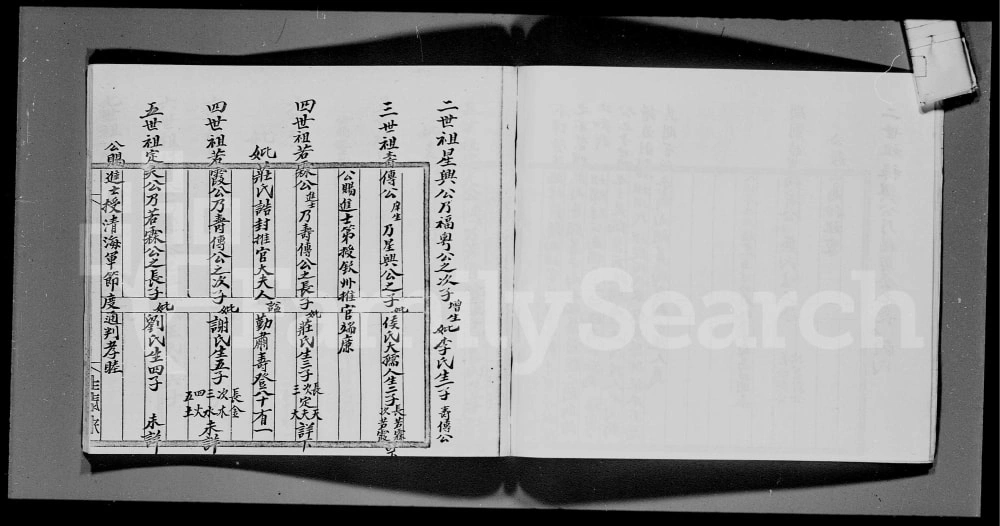 二世祖星興公乃福粤公之次子增生妣李氏生一子壽傳公
三世祖壽傳公庠生乃星興公之子妣侯氏大孺人生二子長若霖次若霞
公賜進士第授欽州推官端康
四世祖若霖公進士乃壽傳公之長子妣莊氏生三子長天次定三大夫詳下
妣莊氏誥封推官大夫人謚勤肅壽登八十有一
四世祖若霞公乃壽傳公之次子妣謝氏生五子長金次木三水四大五土未詳
五世祖定公乃若霖公之長子妣劉氏生四子未詳
公賜進士授清海軍節度通判孝睦
FamilySearch